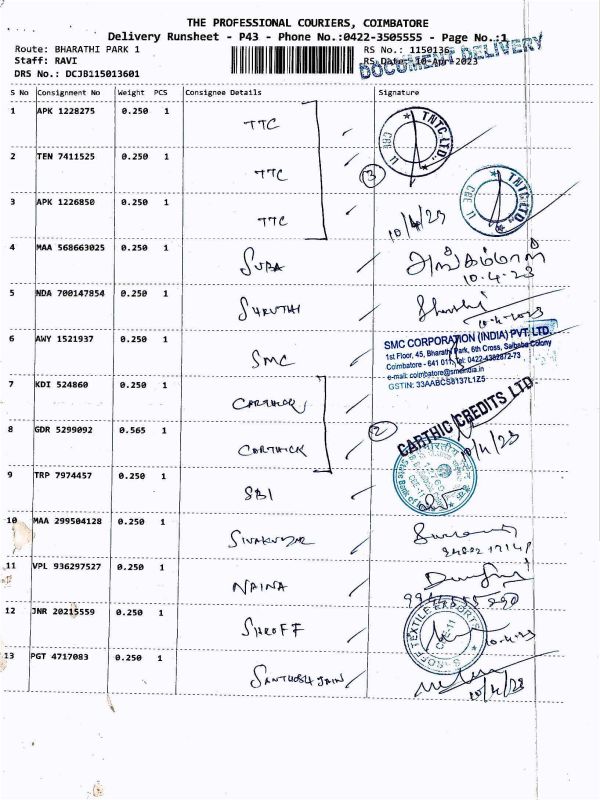 THE PROFESSIONAL COURIERS, COIMBATORE
Delivery Runsheet - P43 - Phone No.:0422-3505555 - Page No.:1
Route: BHARATHI PARK 1
RS No.: 1150136
Staff: RAVI
RS Date: 10-Apr-2023
DOCUMENT DELIVERY
DRS No.: DCJB115013601
S No Consignment No Weight PCS Consignee Details Signature
1 APK 1228275 0.250 1 TTC
TNTC LTD. CBE 11
2 TEN 7411525 0.250 1 TTC
3
3 APK 1226850 0.250 1 TTC
TNTC LTD. CBE 11
10/4/23
4 MAA 568663025 0.250 1 SUBA
10.4.23
5 NDA 700147854 0.250 1 SHRUTHI
10.4.2023
6 AWY 1521937 0.250 1 SMC
SMC CORPORATION (INDIA) PVT. LTD.
1st Floor, 45, Bharathi Park, 6th Cross, Saibaba Colony
Coimbatore - 641 011, Tel: 0422-4382872-73
e-mail: coimbatore@smcindia.in
GSTIN: 33AABCS8137L1Z5
7 KDI 524860 0.250 1 CARTHICK
CARTHIC CREDITS LTD.
8 GDR 5299092 0.565 1 CARTHICK
2
10/4/23
9 TRP 7974457 0.250 1 SBI
10 MAA 299504128 0.250 1 SIVAKUMAR
11 VPL 936297527 0.250 1 NAINA
12 JNR 20215559 0.250 1 SHROFF
SHROFF TEXTILE EXPORTS
10.4.23
13 PGT 4717083 0.250 1 SANTHOSH JAIN
10/4/23